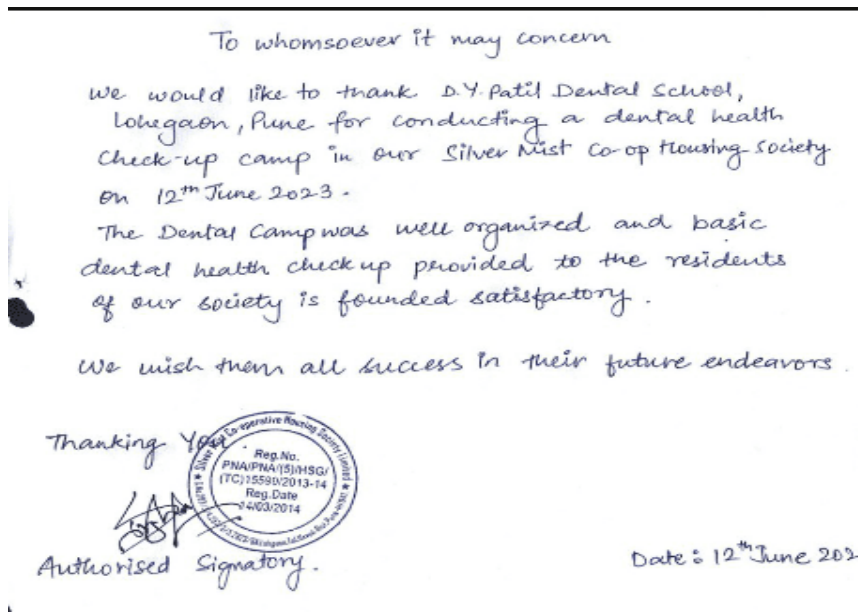 To whomsoever it may concern
We would like to thank D.Y. Patil Dental School,
Lohegaon, Pune for conducting a dental health
Check-up camp in our Silver Mist Co-op Housing Society
on 12th June 2023.
The Dental Camp was well organized and basic
dental health check up provided to the residents
of our society is founded satisfactory.
We wish them all success in their future endeavors.
Thanking You.
Silver Mist Co-operative Housing Society Limited
Reg.No.
PNA/PNA/(5)/HSG/
(TC)15599/2013-14
Reg.Date
14/03/2014
Authorised Signatory.
Date: 12th June 202